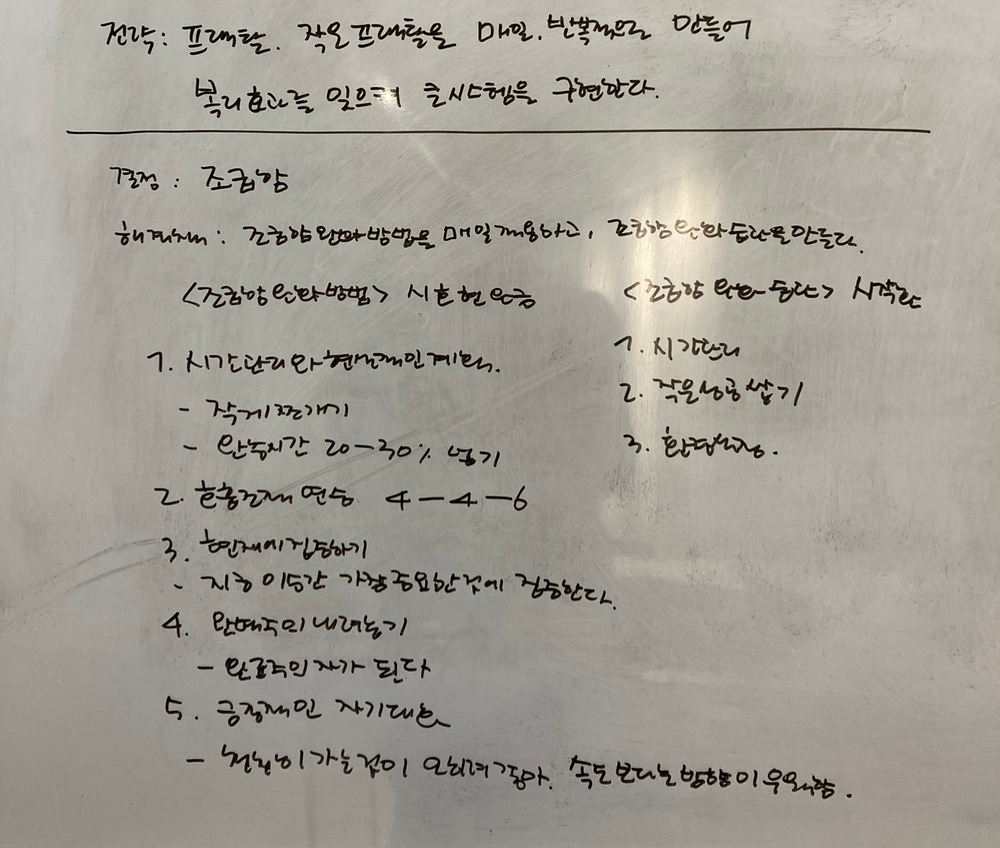 전략: 프랙탈. 작은 프랙탈을 매일. 반복적으로 만들어
복리효과를 일으켜 큰 시스템을 구현한다.
결정 : 조급함
해결책 : 조급함 완화 방법을 매일 적용하고, 조급함 완화 습관을 만들다.
<조급함 완화 방법> 시 현
<조급함 완화 습관> 시작
1. 시간관리와 현실적인 계획.
- 작게 쪼개기
- 완충시간 20-30% 넣기
2. 호흡조절 연습 4-4-6
3. 현재에 집중하기
- 지금 이 순간 가장 중요한 것에 집중한다.
4. 완벽주의 내려놓기
- 완료주의자가 된다
5. 긍정적인 자기대화
- 천천히 가는 것이 오히려 좋아. 속도보다는 방향이 우월함.
1. 시간관리
2. 작은성공 쌓기
3. 환경설정.